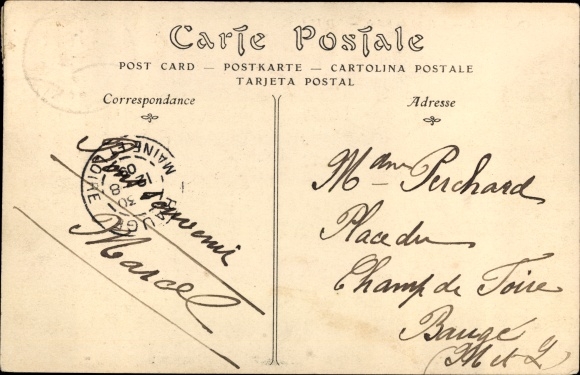 Carte Postale
POST CARD — POSTKARTE — CARTOLINA POSTALE
TARJETA POSTAL
Correspondance
Adresse
MAINE ET LOIRE
30
8
Bons Souvenir
Marcel
Mdme Perchard
Place du
Champ de Foire
Baugé
(M et L)